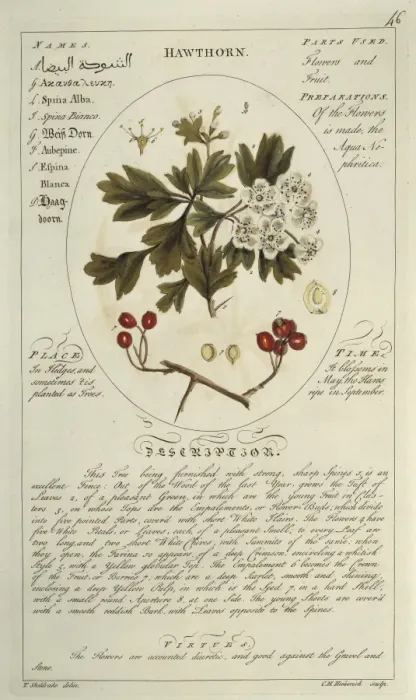 46
HAWTHORN.
NAMES.
A. الشوكة البيضا
G. Ακανθα λευκη.
L. Spina Alba.
I. Spina Bianco.
G. Weiß Dorn.
F. Aubepine.
S. Espina
Blanca
D. Haag-
doorn.
PARTS USED.
Flowers and
Fruit.
PREPARATIONS.
Of the Flowers
is made, the
Aqua Ne-
phritica.
PLACE
In Hedges, and
sometimes 'tis
planted as Trees.
TIME.
It blossoms in
May, the Haws
ripe in September.
DESCRIPTION.
This Tree being furnished with strong, sharp Spires 1, is an
excellent Fence: Out of the Wood of the last Year, grows the Tuft of
Leaves 2, of a pleasant Green, in which are the young Fruit in Clus-
ters 3, on whose Tops are the Empalements, or Flower Buds, which divide
into five pointed Parts, cover'd with short White Hairs. The Flowers 4 have
five White Petals, or Leaves, each of a pleasant Smell; to every Leaf are
two long and two short White Chives, with Summits of the same: when
they open, the Farina so appears of a deep Crimson: encircling a whitish
Style 5, with a Yellow globular Top. The Empalement 6 becomes the Crown
of the Fruit, or Berries 7, which are a deep Scarlet, smooth and shining:
inclosing a deep Yellow Pulp, in which is the Seed 7, in a hard Shell,
with a small round Aperture 8, at one Side. The young Shoots are cover'd
with a smooth reddish Bark, with Leaves opposite to the Spines.
VIRTUES.
The Flowers are accounted diuretic, and good against the Gravel and
Stone.
T. Sheldrake delin.
C.H. Hemerich sculp.